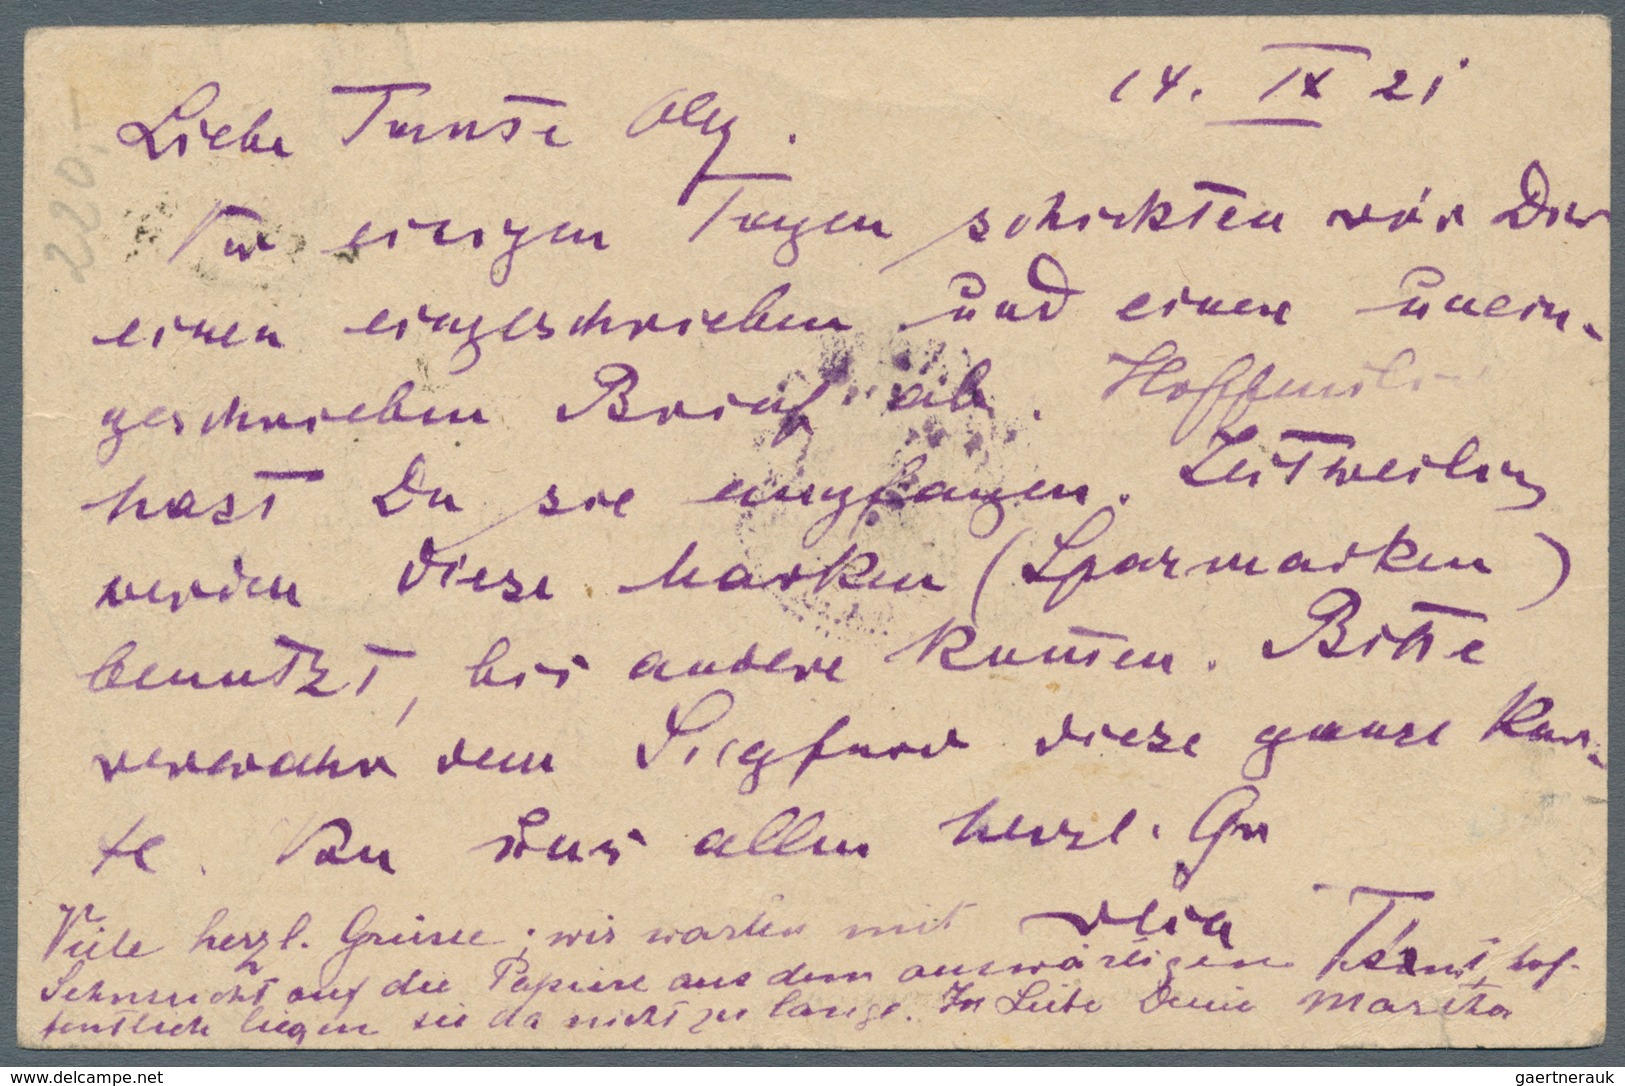 14. IX 21
Liebe Tante Olly.
Vor einigen Tagen schickten wir Dir
einen eingeschrieben und einen unein-
geschrieben Brief ab. Hoffentlich
hast Du sie empfangen. Zeitweilig
werden diese Marken (Sparmarken)
benutzt, bis andere kommen. Bitte
verwahr dem Siegfried diese ganze Kar-
te. Von uns allen herzl. Gr
Viele herzl. Grüsse; wir warten mit
Sehnsucht auf die Papiere aus dem auswärtigen Amt, hof-
fentlich liegen sie da nicht zu lange. In Liebe Deine Martha
220,-
gaertnerauk @ delcampe.net